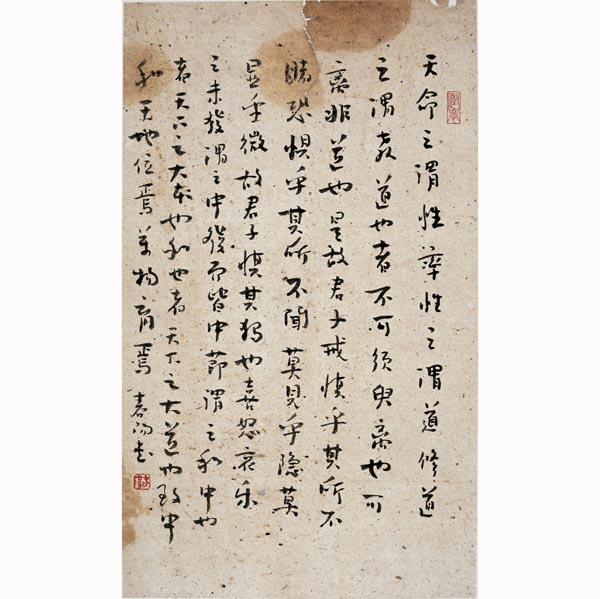 天命之謂性率性之謂道修道
之謂教道也者不可須臾離也可
離非道也是故君子戒慎乎其所不
睹恐懼乎其所不聞莫見乎隱莫
显乎微故君子慎其独也喜怒哀乐
之未發謂之中發而皆中節謂之和中也
者天下之大本也和也者天下之大道也致中
和天地位焉萬物育焉